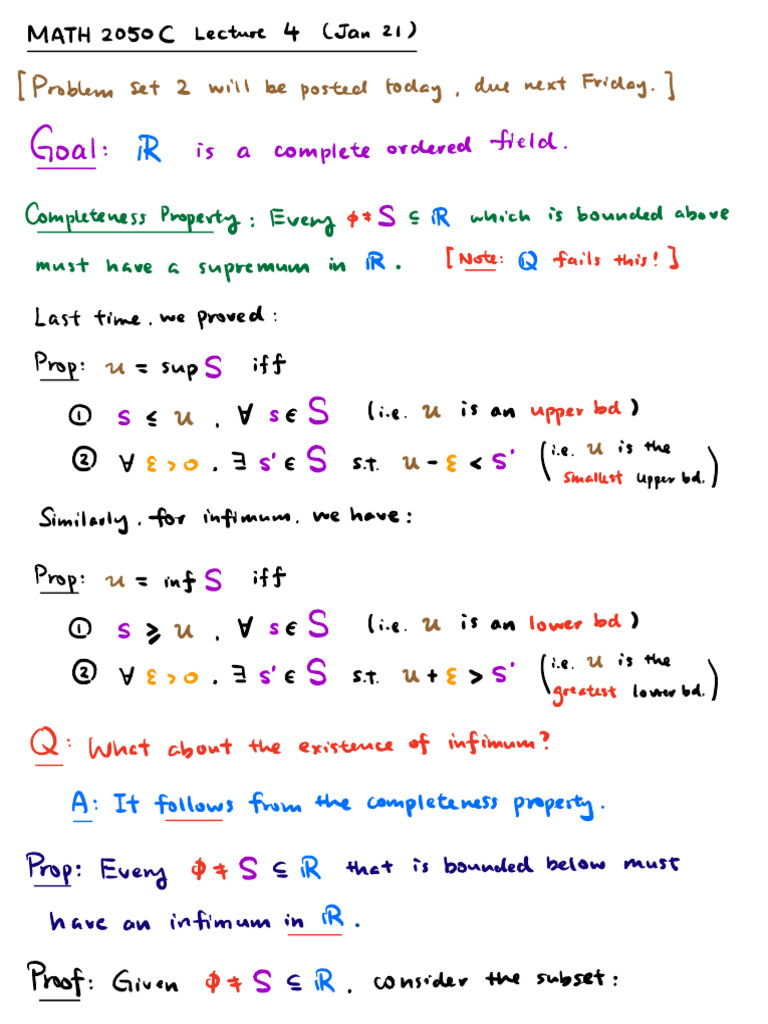 MATH 2050C Lecture 4 (Jan 21)
[Problem set 2 will be posted today, due next Friday.]
Goal: ℝ is a complete ordered field.
Completeness Property: Every ϕ ≠ S ⊆ ℝ which is bounded above
must have a supremum in ℝ. [Note: ℚ fails this!]
Last time, we proved:
Prop: u = sup S iff
① s ≤ u , ∀ s ∈ S (i.e. u is an upper bd)
② ∀ ε > 0 , ∃ s' ∈ S s.t. u - ε < s' (i.e. u is the smallest upper bd.)
Similarly, for infimum, we have:
Prop: u = inf S iff
① s ≥ u , ∀ s ∈ S (i.e. u is an lower bd)
② ∀ ε > 0 , ∃ s' ∈ S s.t. u + ε > s' (i.e. u is the greatest lower bd.)
Q: What about the existence of infimum?
A: It follows from the completeness property.
Prop: Every ϕ ≠ S ⊆ ℝ that is bounded below must
have an infimum in ℝ.
Proof: Given ϕ ≠ S ⊆ ℝ, consider the subset: